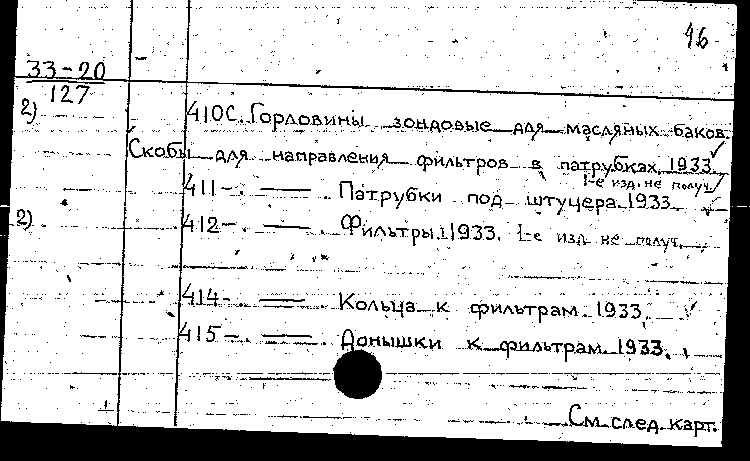 46
33-20
127
2) 410С. Горловины зондовые для масляных баков.
Скобы для направления фильтров в патрубках. 1933.
1-е изд. не получ.
411- . —— . Патрубки под штуцера. 1933.
2) 412- . —— . Фильтры. 1933. 1-е изд. не получ.
414- . —— . Кольца к фильтрам. 1933.
415- . —— . Донышки к фильтрам. 1933.
См. след. карт.